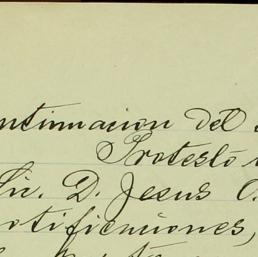 ntinuacion del
Protestó
Lic. D. Jesus C.
otificaciones,